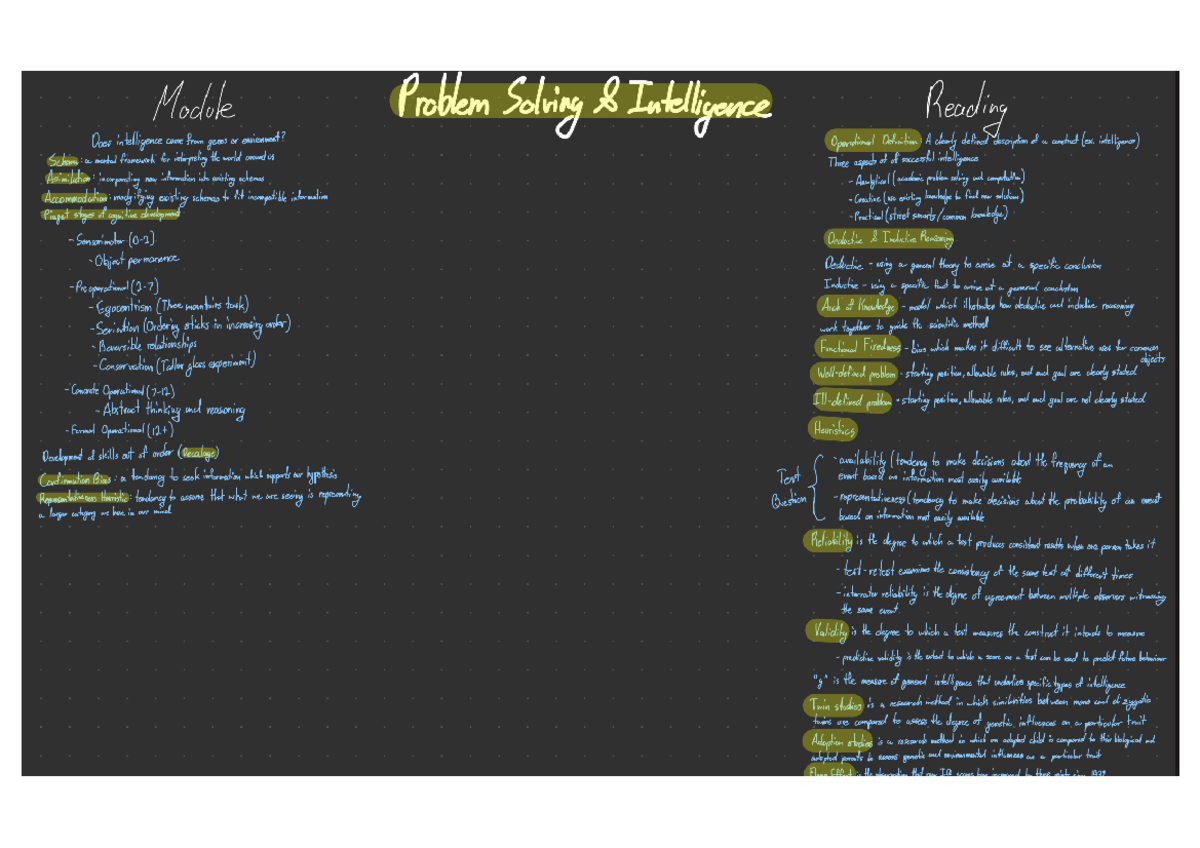 Problem Solving & Intelligence
Module
Does intelligence come from genes or environment?
Schema: a mental framework for interpreting the world around us
Asimilation: incorporating new information into existing schemas
Accommodation: modifying existing schemas to fit incompatible information
Piaget stages of cognitive development
- Sensorimotor (0-2)
- Object permanence
- Preoperational (2-7)
- Egocentrism (Three mountains task)
- Seriation (Ordering sticks in increasing order)
- Reversible relationships
- Conservation (Taller glass experiment)
- Concrete Operational (7-12)
- Abstract thinking and reasoning
- Formal Operational (12+)
Development of skills out of order (Decalage)
Confirmation Bias: a tendency to seek information which supports our hypothesis
Representativeness Heuristic: tendency to assume that what we are seeing is representing
a larger category we have in our mind
Reading
Operational Definition: A clearly defined description of a construct (ex. intelligence)
Three aspects of of successful intelligence
- Analytical (academic problem solving and computation)
- Creative (use existing knowledge to find new solutions)
- Practical (street smarts/common knowledge)
Deductive & Inductive Reasoning
Deductive - using a general theory to arrive at a specific conclusion
Inductive - using a specific fact to arrive at a general conclusion
Arch of Knowledge - model which illustrates how deductive and inductive reasoning
work together to guide the scientific method
Functional Fixedness - bias which makes it difficult to see alternative uses for common
objects
Well-defined problem - starting position, allowable rules, and end goal are clearly stated
Ill-defined problem - starting position, allowable rules, and end goal are not clearly stated
Heuristics
Test
Question
- availability (tendency to make decisions about the frequency of an
event based on information most easily available
- representativeness (tendency to make decisions about the probability of an event
based on information most easily available
Reliability is the degree to which a test produces consistent results when one person takes it
- test-retest examines the consistency of the same test at different times
- interrater reliability is the degree of agreement between multiple observers witnessing
the same event.
Validity is the degree to which a test measures the construct it intends to measure
- predictive validity is the extent to which a score on a test can be used to predict future behaviour
"g" is the measure of general intelligence that underlies specific types of intelligence
Twin studies is a research method in which similarities between mono and dizygotic
twins are compared to assess the degree of genetic influences on a particular trait
Adoption studies is a research method in which an adopted child is compared to their biological and
adopted parents to assess genetic and environmental influences on a particular trait
Flynn Effect is the observation that raw IQ scores have increased